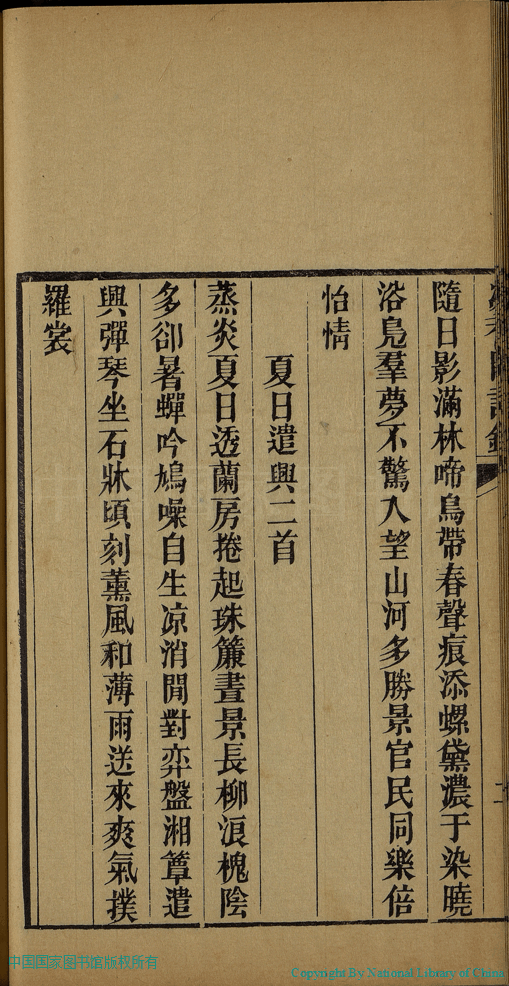 隨日影滿林啼鳥帶春聲痕添螺黛濃于染曉
浴鳬羣夢不驚入望山河多勝景官民同樂倍
怡情
夏日遣興二首
蒸炎夏日透蘭房捲起珠簾晝景長柳浪槐陰
多卻暑蟬吟鳩噪自生凉消閒對弈盤湘簟遣
興彈琴坐石牀頃刻薰風和薄雨送來爽氣撲
羅裳
中国国家图书馆版权所有
Copyright By National Library of China